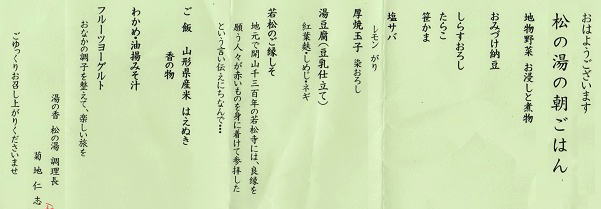 おはようございます
松の湯の朝ごはん
地物野菜 お浸しと煮物
おみづけ納豆
しらすおろし
たらこ
笹かま
塩サバ
レモン がり
厚焼玉子 染おろし
湯豆腐（豆乳仕立て）
紅葉麩・しめじ・ネギ
若松のご縁しそ
地元で開山千三百年の若松寺には、良縁を
願う人々が赤いものを身に着けて参拝した
という言い伝えにちなんで・・・
ご飯 山形県産米 はえぬき
香の物
わかめ・油揚みそ汁
フルーツヨーグルト
おなかの調子を整えて、楽しい旅を
湯の香 松の湯 調理長
菊地 仁志
ごゆっくりお召し上がりくださいませ